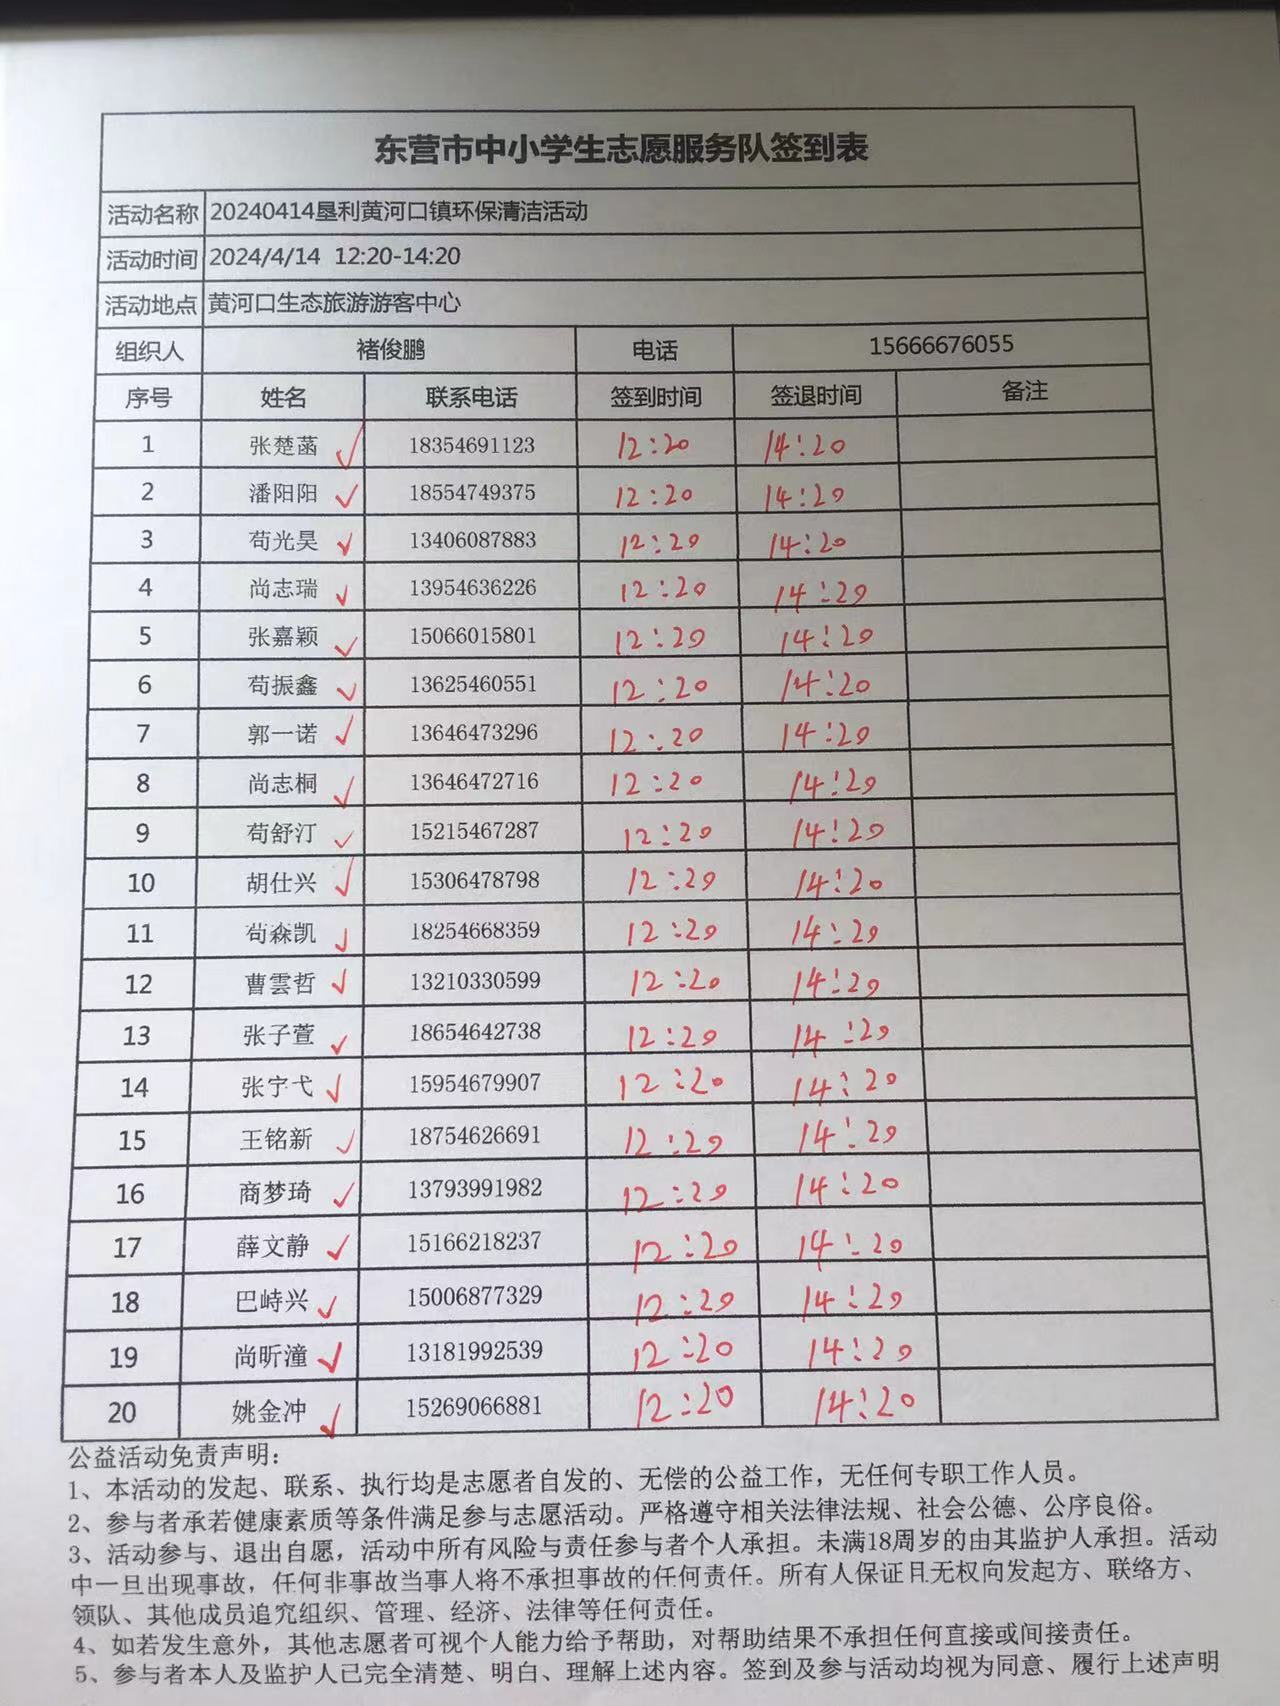 东营市中小学生志愿服务队签到表
活动名称 20240414垦利黄河口镇环保清洁活动
活动时间 2024/4/14 12:20-14:20
活动地点 黄河口生态旅游游客中心
组织人 褚俊鹏 电话 15666676055
序号 姓名 联系电话 签到时间 签退时间 备注
1 张楚菡 ✓ 18354691123 12:20 14:20
2 潘阳阳 ✓ 18554749375 12:20 14:20
3 苟光昊 ✓ 13406087883 12:20 14:20
4 尚志瑞 ✓ 13954636226 12:20 14:20
5 张嘉颖 ✓ 15066015801 12:20 14:20
6 苟振鑫 ✓ 13625460551 12:20 14:20
7 郭一诺 ✓ 13646473296 12:20 14:20
8 尚志桐 ✓ 13646472716 12:20 14:20
9 苟舒汀 ✓ 15215467287 12:20 14:20
10 胡仕兴 ✓ 15306478798 12:20 14:20
11 苟森凯 ✓ 18254668359 12:20 14:20
12 曹雲哲 ✓ 13210330599 12:20 14:20
13 张子萱 ✓ 18654642738 12:20 14:20
14 张宇弋 ✓ 15954679907 12:20 14:20
15 王铭新 ✓ 18754626691 12:20 14:20
16 商梦琦 ✓ 13793991982 12:20 14:20
17 薛文静 ✓ 15166218237 12:20 14:20
18 巴峙兴 ✓ 15006877329 12:20 14:20
19 尚昕潼 ✓ 13181992539 12:20 14:20
20 姚金冲 ✓ 15269066881 12:20 14:20
公益活动免责声明：
1、本活动的发起、联系、执行均是志愿者自发的、无偿的公益工作，无任何专职工作人员。
2、参与者承若健康素质等条件满足参与志愿活动。严格遵守相关法律法规、社会公德、公序良俗。
3、活动参与、退出自愿，活动中所有风险与责任参与者个人承担。未满18周岁的由其监护人承担。活动
中一旦出现事故，任何非事故当事人将不承担事故的任何责任。所有人保证且无权向发起方、联络方、
领队、其他成员追究组织、管理、经济、法律等任何责任。
4、如若发生意外，其他志愿者可视个人能力给予帮助，对帮助结果不承担任何直接或间接责任。
5、参与者本人及监护人已完全清楚、明白、理解上述内容。签到及参与活动均视为同意、履行上述声明